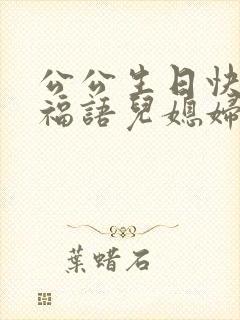 公公生日快
福語兒媳婦
葉蠟石